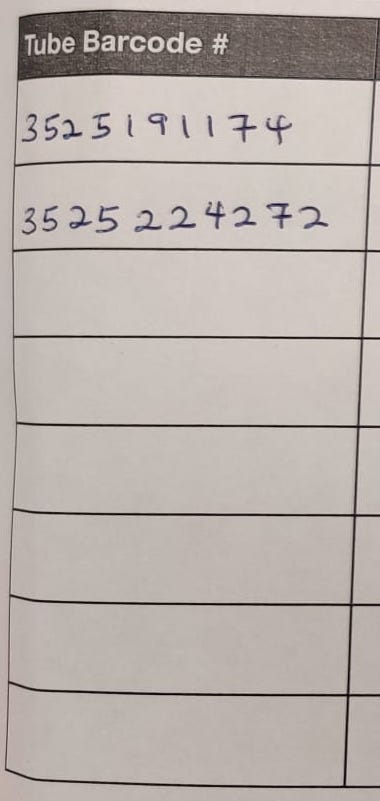 Tube Barcode #
3525191174
3525224272